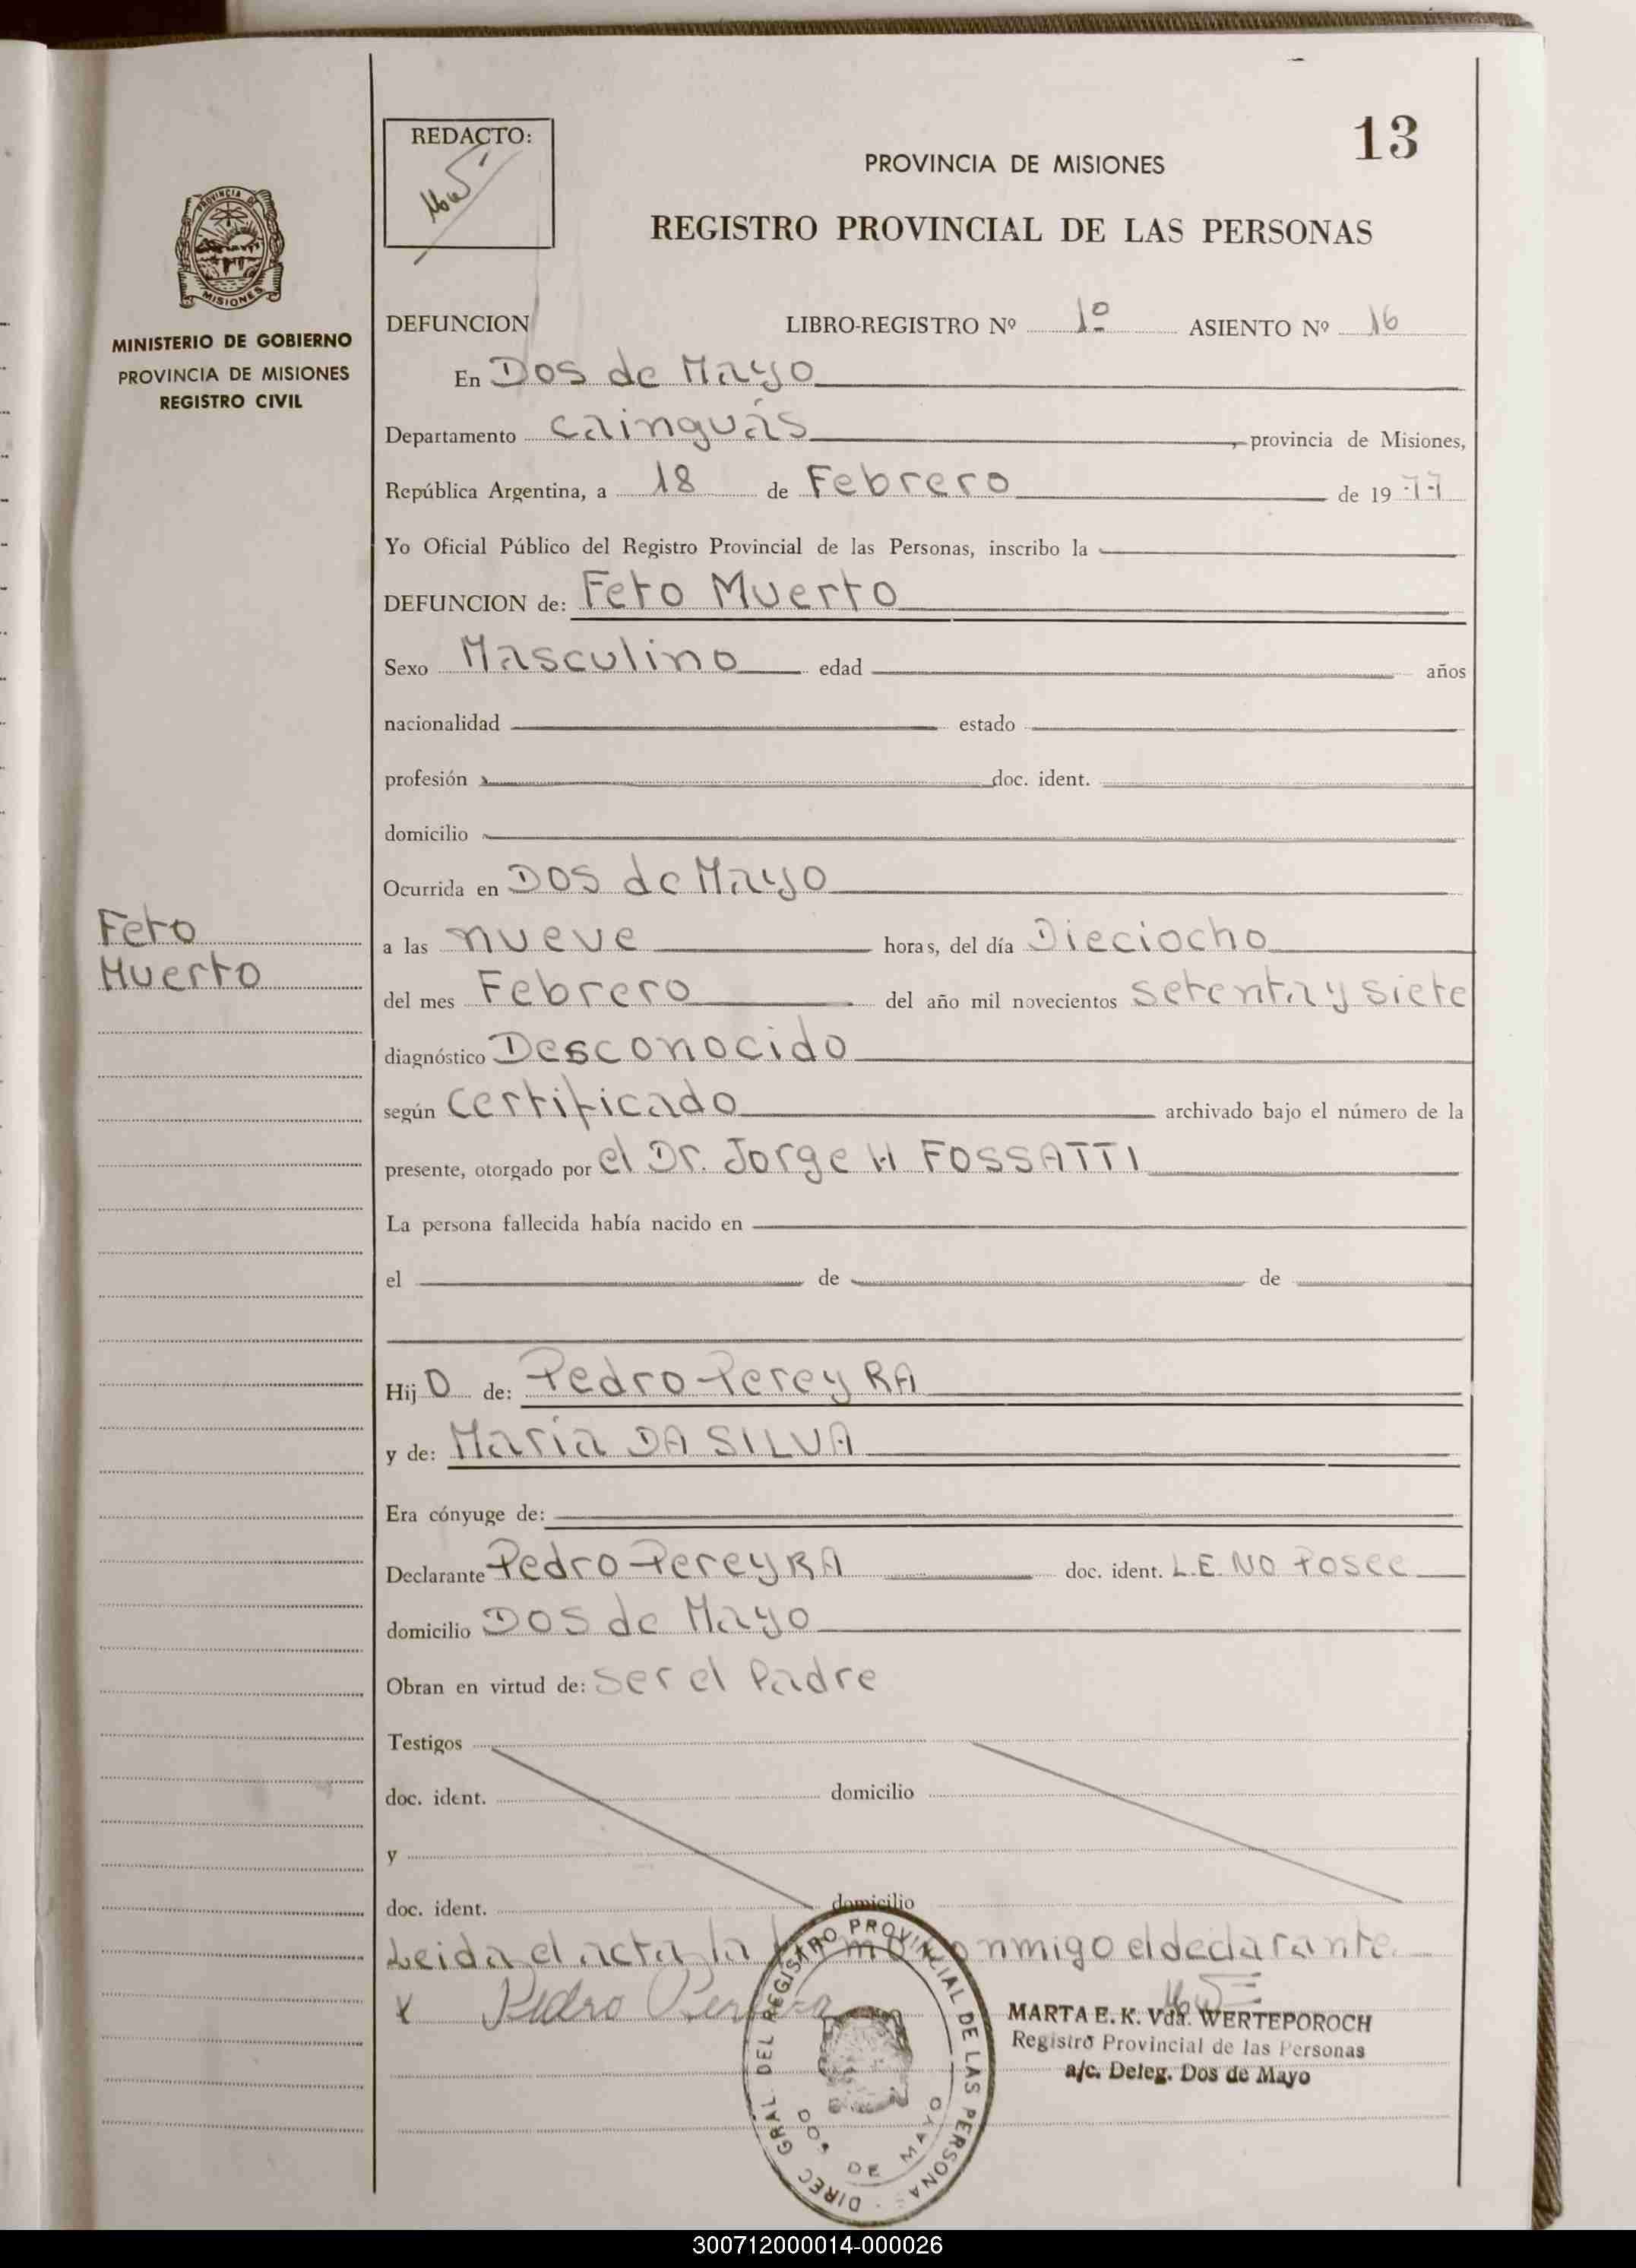 13
REDACTO:
PROVINCIA DE MISIONES
REGISTRO PROVINCIAL DE LAS PERSONAS
PROVINCIA DE
MISIONES
MINISTERIO DE GOBIERNO
PROVINCIA DE MISIONES
REGISTRO CIVIL
DEFUNCION LIBRO-REGISTRO Nº 1º ASIENTO Nº 16
En Dos de Mayo
Departamento Cainguás, provincia de Misiones,
República Argentina, a 18 de Febrero de 1977
Yo Oficial Público del Registro Provincial de las Personas, inscribo la
DEFUNCION de: Feto Muerto
Sexo Masculino edad años
nacionalidad estado
profesión doc. ident.
domicilio
Ocurrida en Dos de Mayo
Feto
Muerto
a las nueve horas, del día Dieciocho
del mes Febrero del año mil novecientos setenta y siete
diagnóstico Desconocido
según Certificado archivado bajo el número de la
presente, otorgado por el Dr. Jorge H FOSSATTI
La persona fallecida había nacido en
el de de
Hijo de: Pedro PereyRA
y de: María DA SILVA
Era cónyuge de:
Declarante Pedro PereyRA doc. ident. L.E. NO Posee
domicilio Dos de Mayo
Obran en virtud de: ser el Padre
Testigos
doc. ident. domicilio
y
doc. ident. domicilio
Leida el acta la firmó conmigo el declarante.
x Pedro Pereyra
MARTA E. K. Vda. WERTEPOROCH
Registro Provincial de las Personas
a/c. Deleg. Dos de Mayo
DIREC GRAL DEL REGISTRO PROVINCIAL DE LAS PERSONAS
DOS DE MAYO
300712000014-000026